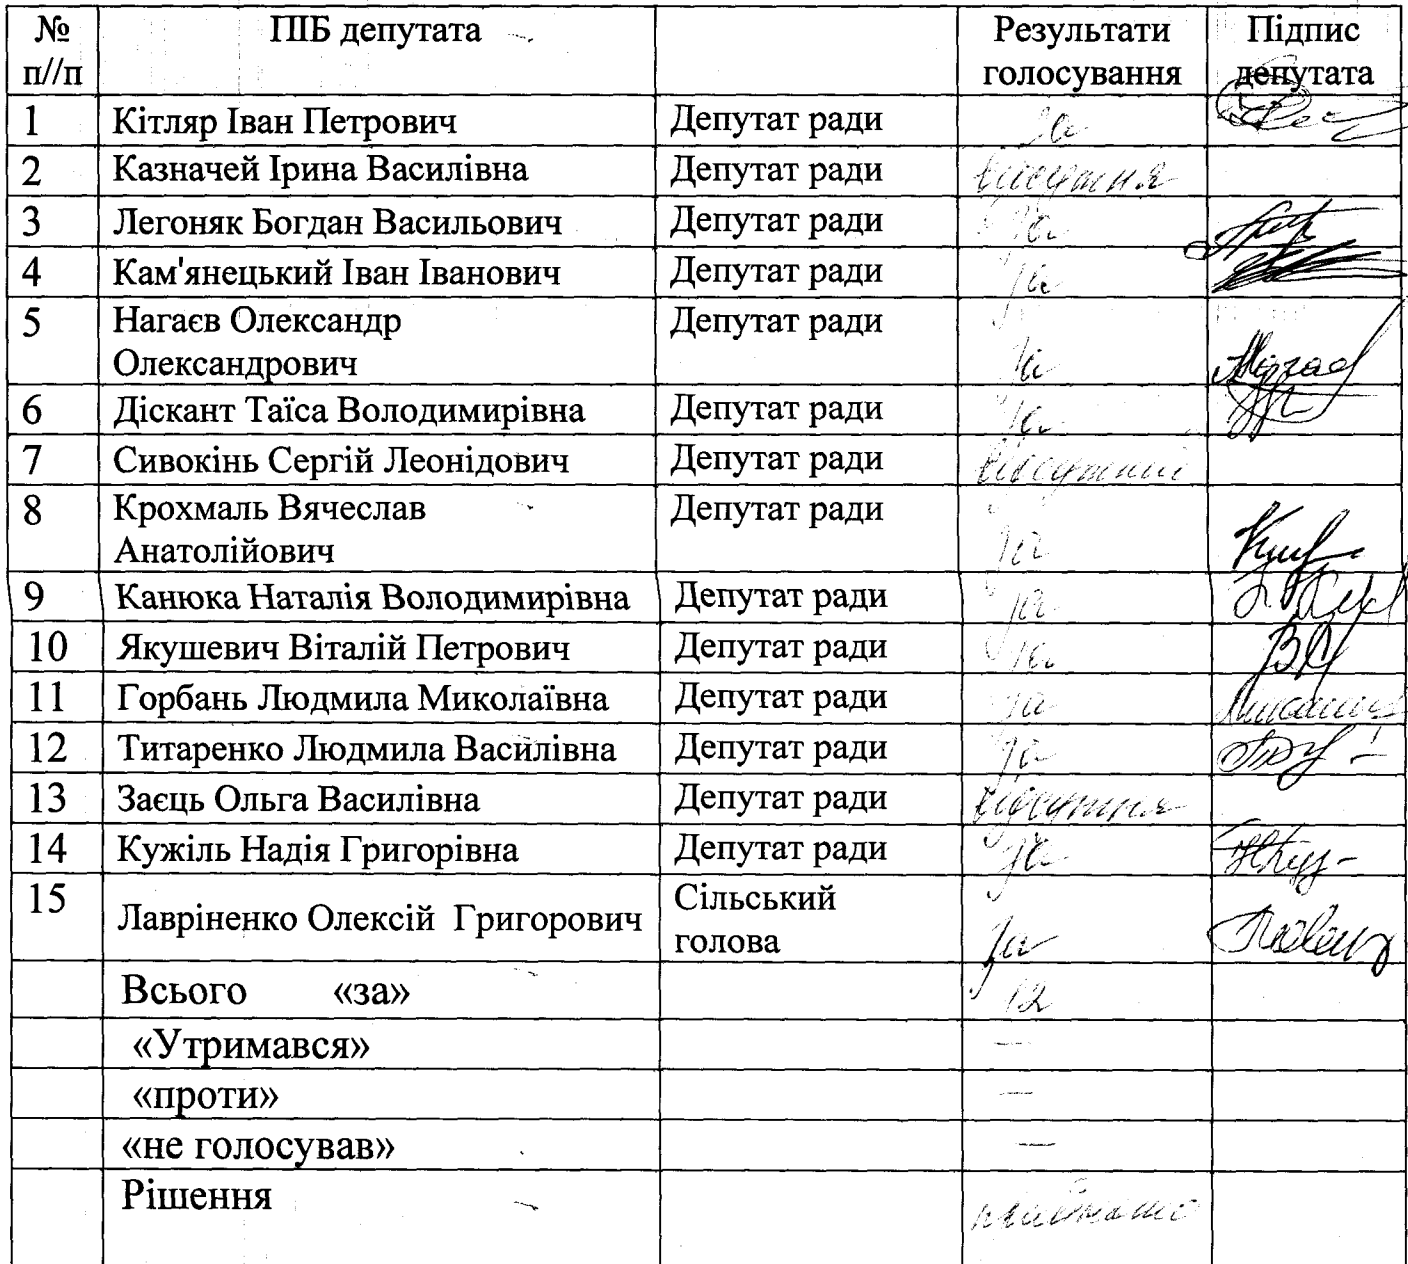 № п//п ПІБ депутата Результати голосування Підпис депутата
1 Кітляр Іван Петрович Депутат ради за
2 Казначей Ірина Василівна Депутат ради відсутня
3 Легоняк Богдан Васильович Депутат ради за
4 Кам'янецький Іван Іванович Депутат ради за
5 Нагаєв Олександр Депутат ради
Олександрович за
6 Діскант Таїса Володимирівна Депутат ради за
7 Сивокінь Сергій Леонідович Депутат ради відсутній
8 Крохмаль Вячеслав Депутат ради
Анатолійович за
9 Канюка Наталія Володимирівна Депутат ради за
10 Якушевич Віталій Петрович Депутат ради за
11 Горбань Людмила Миколаївна Депутат ради за
12 Титаренко Людмила Василівна Депутат ради за
13 Заєць Ольга Василівна Депутат ради відсутня
14 Кужіль Надія Григорівна Депутат ради за
15 Лавріненко Олексій Григорович Сільський голова за
Всього «за» 12
«Утримався» —
«проти» —
«не голосував» —
Рішення прийнято